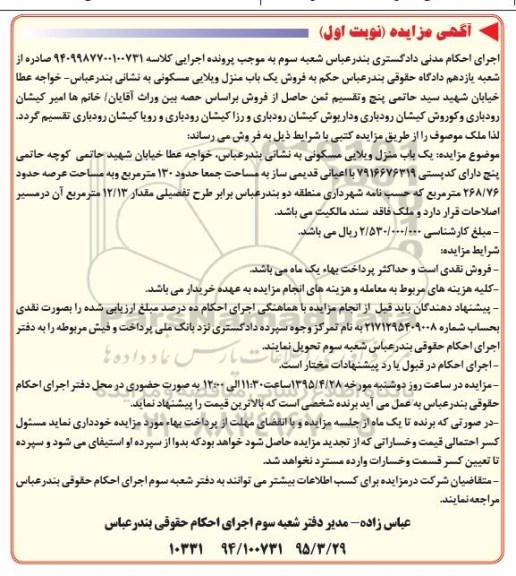 آگهی مزایده (نوبت اول)
اجرای احکام مدنی دادگستری بندرعباس شعبه سوم به موجب پرونده اجرایی کلاسه ۹۴۰۹۹۸۷۷۰۰۱۰۰۷۳۱ صادره از
شعبه یازدهم دادگاه حقوقی بندرعباس حکم به فروش یک باب منزل ویلایی مسکونی به نشانی بندرعباس- خواجه عطا
خیابان شهید سید حاتمی پنج وتقسیم ثمن حاصل از فروش براساس حصه بین وراث آقایان/ خانم ها امیر کیشان
رودباری وکوروش کیشان رودباری وداریوش کیشان رودباری و رزا کیشان رودباری و رویا کیشان رودباری تقسیم گردد.
لذا ملک موصوف را از طریق مزایده کتبی با شرایط ذیل به فروش می رساند:
موضوع مزایده: یک باب منزل ویلایی مسکونی به نشانی بندرعباس، خواجه عطا خیابان شهید حاتمی کوچه حاتمی
پنج دارای کدپستی ۷۹۱۶۶۷۶۳۱۹ با اعیانی قدیمی ساز به مساحت جمعا حدود ۱۳۰ مترمربع وبه مساحت عرصه حدود
۲۶۸/۷۶ مترمربع که حسب نامه شهرداری منطقه دو بندرعباس برابر طرح تفصیلی مقدار ۱۲/۱۳ مترمربع آن درمسیر
اصلاحات قرار دارد و ملک فاقد سند مالکیت می باشد.
- مبلغ کارشناسی ۲/۵۳۰/۰۰۰/۰۰۰ ریال می باشد.
شرایط مزایده:
- فروش نقدی است و حداکثر پرداخت بهاء یک ماه می باشد.
-کلیه هزینه های مربوط به معامله و هزینه های انجام مزایده به عهده خریدار می باشد.
- پیشنهاد دهندگان باید قبل از انجام مزایده با هماهنگی اجرای احکام ده درصد مبلغ ارزیابی شده را بصورت نقدی
بحساب شماره ۲۱۷۱۲۹۵۴۰۹۰۰۸ به نام تمرکز وجوه سپرده دادگستری نزد بانک ملی پرداخت و فیش مربوطه را به دفتر
اجرای احکام حقوقی بندرعباس شعبه سوم تحویل نمایند.
- اجرای احکام در قبول یا رد پیشنهادات مختار است.
- مزایده در ساعت روز دوشنبه مورخه ۱۳۹۵/۴/۲۸ساعت۱۱:۳۰الی ۱۲:۰۰ به صورت حضوری در محل دفتر اجرای احکام
حقوقی بندرعباس به عمل می آید برنده شخصی است که بالاترین قیمت را پیشنهاد نماید.
-در صورتی که برنده تا یک ماه از جلسه مزایده و با انقضای مهلت از پرداخت بهاء مورد مزایده خودداری نماید مسئول
کسر احتمالی قیمت وخساراتی که از تجدید مزایده حاصل شود خواهد بودکه بدوا از سپرده او استیفای می شود و سپرده
تا تعیین کسر قسمت وخسارات وارده مسترد نخواهد شد.
- متقاضیان شرکت درمزایده برای کسب اطلاعات بیشتر می توانند به دفتر شعبه سوم اجرای احکام حقوقی بندرعباس
مراجعه نمایند.
عباس زاده- مدیر دفتر شعبه سوم اجرای احکام حقوقی بندرعباس
۹۵/۳/۲۹ ۹۴/۱۰۰۷۳۱ ۱۰۳۳۱